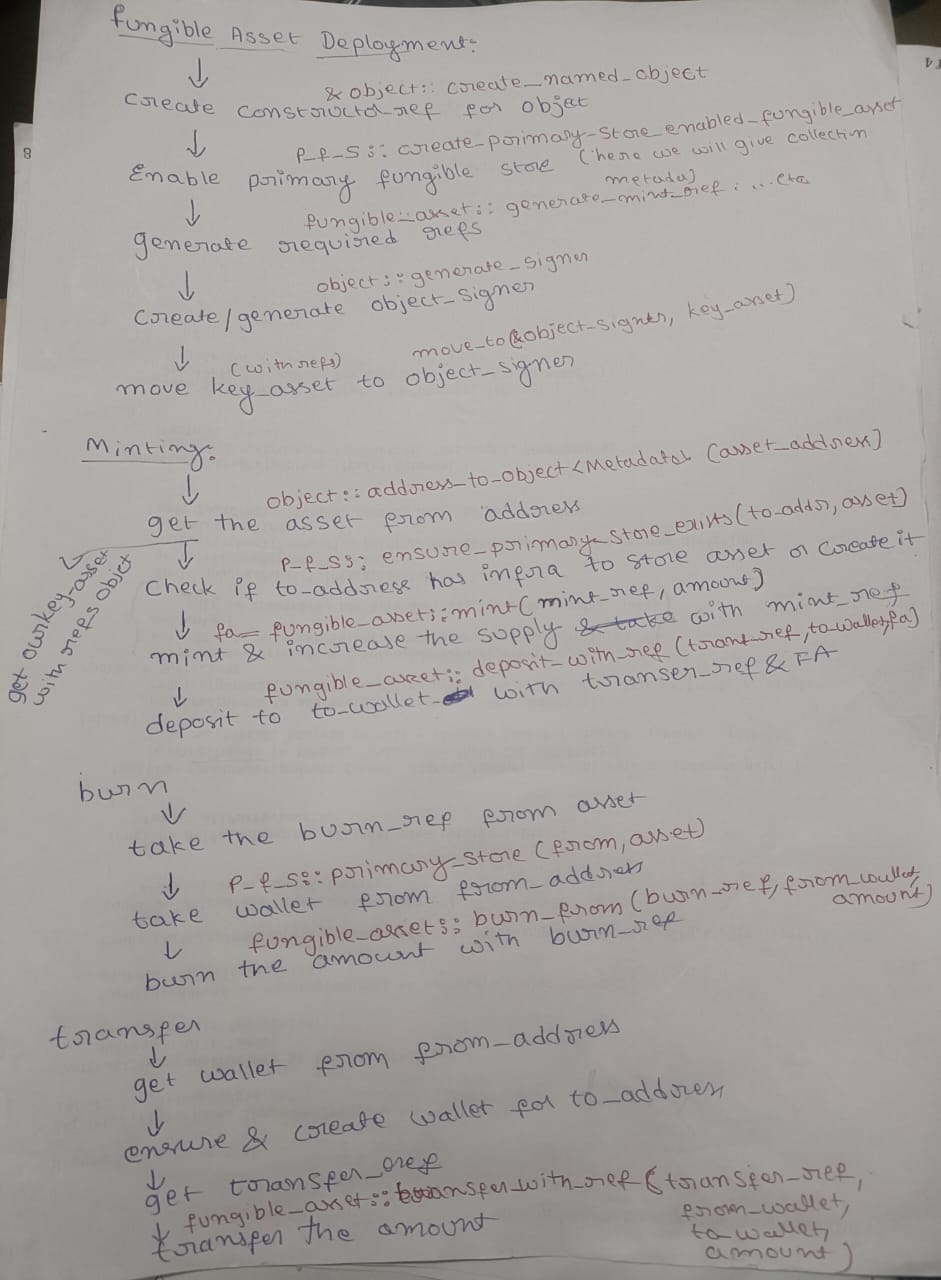 Fungible Asset Deployment:
↓
& object:: create_named_object
Create constructor_ref for object
↓
P_f_S:: create_primary_store_enabled_fungible_asset
Enable primary fungible store (here we will give collection
metada)
↓
fungible_asset:: generate_mint_ref. ...etc
generate required refs
↓
object:: generate_signer
Create/generate object_signer
↓
(with refs)
move_to(&object_signer, key_asset)
move key_asset to object_signer
Minting:
↓
object:: address_to_object<Metadata> (asset_address)
get the asset from address
↓
get our key-asset
with refs object
P_f_S:: ensure_primary_store_exists(to-addr, asset)
Check if to-address has infra to store asset or create it
↓
fa = fungible_asset::mint(mint_ref, amount)
mint & increase the supply & take with mint_ref
↓
fungible_asset:: deposit_with_ref (trans_ref, to-wallet, fa)
deposit to to-wallet with transer_ref & FA
burn
↓
take the burn_ref from asset
↓
P_f_S:: primary_store (from, asset)
take wallet from from_address
↓
fungible_asset:: burn_from (burn_ref, from_wallet,
amount)
burn the amount with burn_ref
transfer
↓
get wallet from from_address
↓
ensure & create wallet for to_address
↓
get transfer_ref
↓
fungible_asset:: transfer_with_ref (transfer_ref,
from_wallet,
to wallet,
amount)
transfer the amount
8